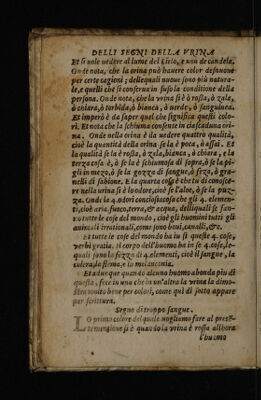 DELLI SEGNI DELLA VRINA
Et si vole vedere al lume del Cielo, e non de candela,
Onde nota, che la orina può hauere color desinnone
per certe cagioni; delle quali nuoue sono piu natura-
le, e quelli che si conserua in suso la conditione della
persona. Onde nota, che la vrina si è ò rossa, ò zala,
ò chiara, ò torbida, ò bianca, ò uerde, ò sanguinea.
Et imperò è da saper quel che significa questi colo-
ri. Et nota che la schiuma consente in ciascaduna ori-
na. Onde nella orina è da uedere quattro qualità,
cioè la quantità della orina se la è poca, ò assai. Et
la qualità se la è rossa, ò zala, bianca, ò chiara, e la
terza cosa è, ò se la è schiumosa di sopra, ò se la pi-
gli in mezo, ò se la gozza di sangue, ò srza, ò gra-
nelli di sabione. Et la quarta cosa è che tu di conosce-
re nella urina si è lo odore, cioè se l'aloe, ò se la puz-
za. Onde la 4. odori conciosiacosa che gli 4. elemen-
ti, cioè aria, fuoco, terra, & acqua, delli quali se san-
no tutte le cose del mondo, cioè gli huomini tutti gli
animali irrationali, come sono boui, canalli, &c.
Et tutte le cose del mondo ha in si queste 4. cose,
verbi gratia. il corpo dell'huomo ha in se 4. cose, le-
quali sono la sozza di 4. elementi, cioè il sangue, la
colera, la flema, e la melanconia.
Et adunque quando alcuno huomo abonda piu di
questa, sece in una che in un'altra la vrina la dimo-
stra molto bene per colori, come qui di sotto appare
per scrittura.
Segno di troppo sangue.
LO primo colore del quale uogliamo fare al prese[n]-
te mentione si è quando la vrina è rossa allhora
l'huomo